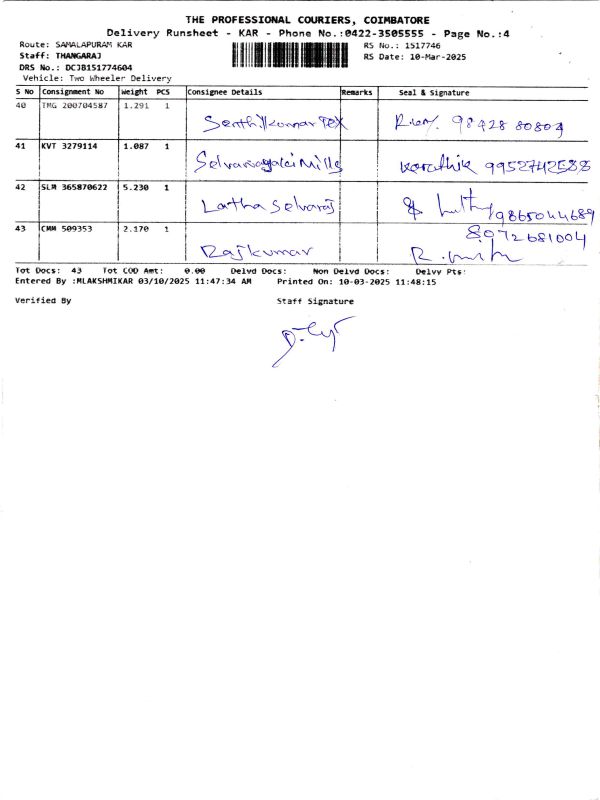 THE PROFESSIONAL COURIERS, COIMBATORE
Delivery Runsheet - KAR - Phone No.:0422-3505555 - Page No.:4
Route: SAMALAPURAM KAR RS No.: 1517746
Staff: THANGARAJ RS Date: 10-Mar-2025
DRS No.: DCJB151774604
Vehicle: Two Wheeler Delivery
S No Consignment No Weight PCS Consignee Details Remarks Seal & Signature
40 TMG 200704587 1.291 1
Senthilkumar Tex 98428 80809
41 KVT 3279114 1.087 1
Selvanayaki Mills Karathik 9952742588
42 SLM 365870622 5.230 1
Latha Selvaraj 9865044689
43 CMM 509353 2.170 1 8072681004
Rajkumar R.
Tot Docs: 43 Tot COD Amt: 0.00 Delvd Docs: Non Delvd Docs: Delvy Pts:
Entered By :MLAKSHMIKAR 03/10/2025 11:47:34 AM Printed On: 10-03-2025 11:48:15
Verified By Staff Signature